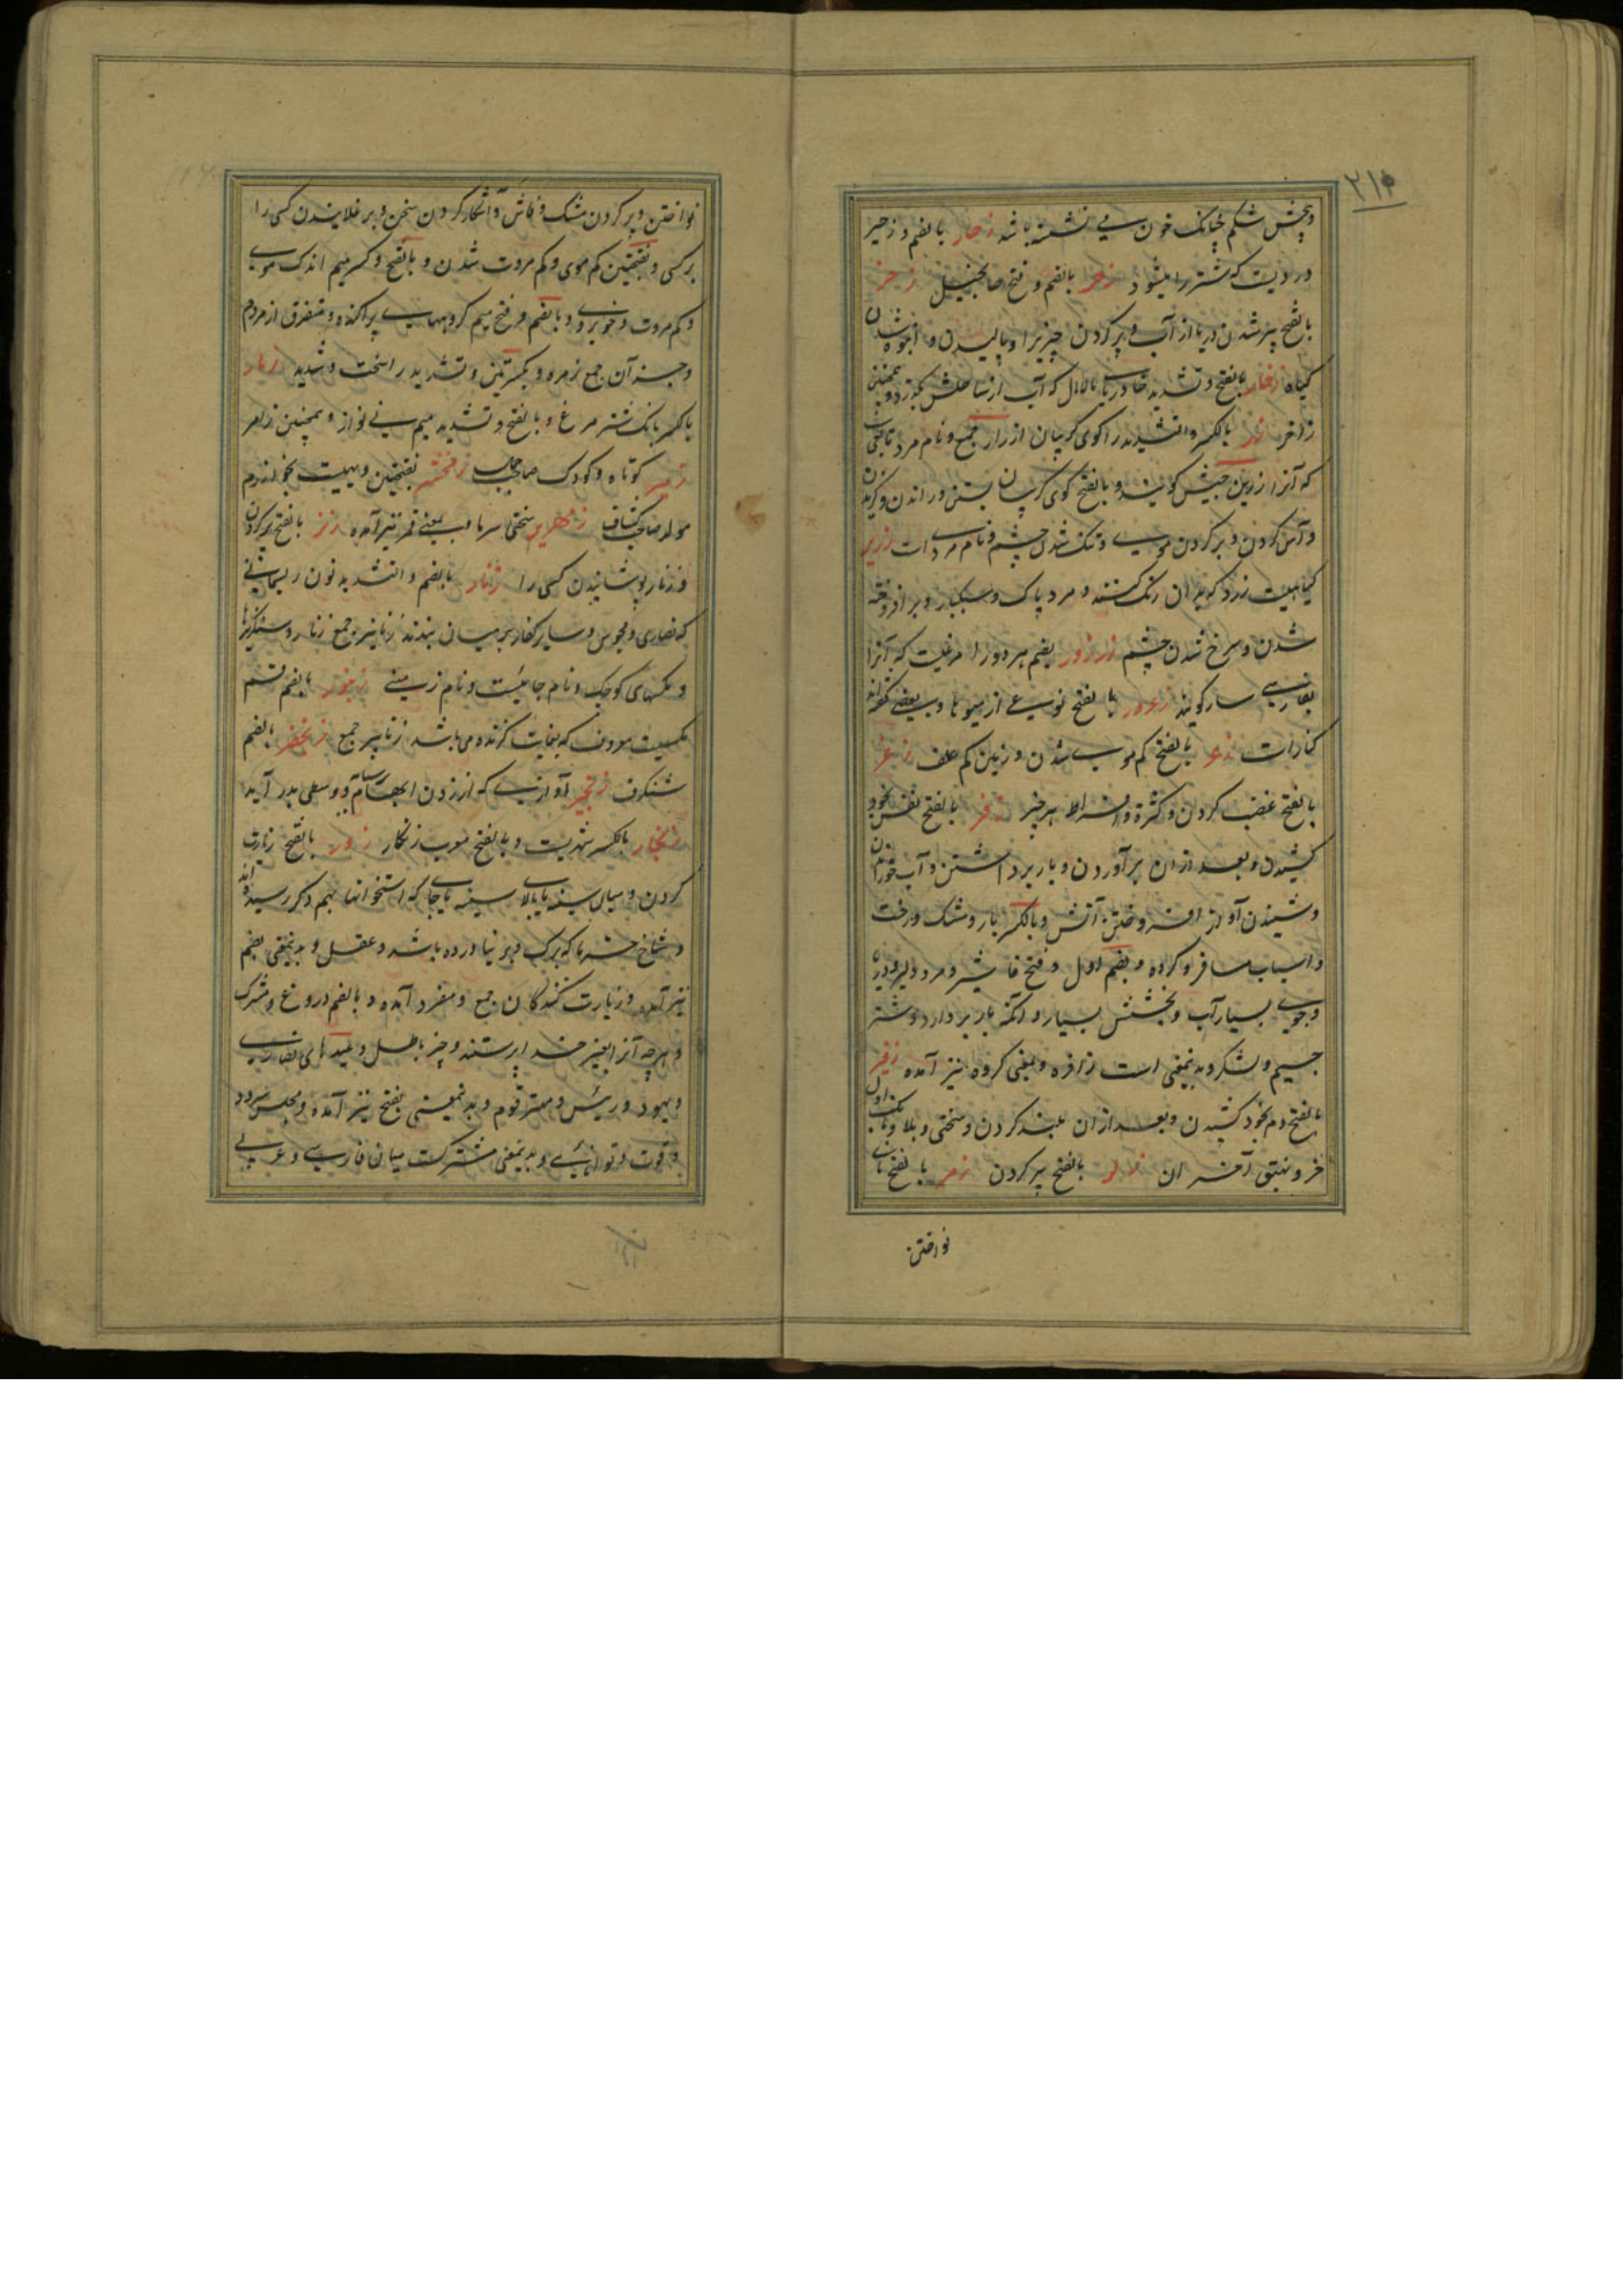 ۲۱۵
و پیچش شکم چنانکه خون می نشسته باشد زحار بالضم و زحیر
دردیست که شتر را میشود زحر بالضم و فتح حا بخیل زخر
بالفتح پر شدن دریا از آب و پر کردن چیزیرا و بالیدن و انبوه شدن
گیاه زخار بالفتح و تشدید خا دریای مالامال که آب از ساحلش بگذرد و همچنین
زاخر زر بالکسر و التشدید را کوی گریبان ازرار جمع و نام مرد تابعی
که آنرا زر بن حبیش گویند و بالفتح کوی گریبان بستن و راندن و گزیدن
و آس کردن و بر کردن موی و تنک شدن چشم و نام مردی است زریر
گیاهیست زرد که بدان رنگ کنند و مرد پاک و سبکبار و برافروخته
شدن و سرخ شدن چشم زرزور بضم هر دو زا مرغیست که آنرا
بفارسی سار گویند زعرور بالفتح نوعی از میوها و بعضی گفته اند
کنارست زعر بالفتح کم موی شدن و زمین کم علف زغر
بالفتح غضب کردن و کثرة و افراط هر چیز زفر بالفتح نفس بخود
کشیدن و بعد از آن برآوردن و بار برداشتن و آب خوردن
و شنیدن آواز افروختن آتش و بالکسر بار و مشک و رخت
و اسباب مسافر و گروه و بضم اول و فتح فا شیر و مرد دلیر و دریا
و جوی بسیار آب و بخشش بسیار و آنکه بار بردارد و شتر
جسیم و لشکر و بدینمعنی است زافره و بمعنی گروه نیز آمده زفیر
بالفتح دم بخود کشیدن و بعد از آن بلند کردن و سختی و بلا و بانک اول
خر و شهیق آخر آن زلر بالفتح پر کردن زمر بالفتح نای
نواختن
نواختن و پر کردن مشک و فاش و آشکار کردن سخن و بر غلانیدن کسی را
بر کسی و بفتحتین کم موی و کم مروت شدن و بالفتح و کسر میم اندک موی
و کم مروت و خوبروی و بالضم و فتح میم گروههای پراکنده و متفرق از مردم
و جز آن جمع زمره و بکسرتین و تشدید را سخت و شدید زمار
بالکسر بانگ شتر مرغ و بالفتح و تشدید میم نی نواز و همچنین زامر
زمیر کوتاه و کودک صاحب جمال زمخشر بفتحتین دیهیست بخوارزم
مولد صاحب کشاف زمهریر سختی سرما و بمعنی قمر نیز آمده زنر بالفتح پر کردن
و زنار پوشانیدن کسی را زنار بالضم و التشدید نون ریسمانی
که نصاری و مجوس و سایر کفار بر میان بندند زنانیر جمع زنار و سنگریزها
و مگسهای کوچک و نام جائیست و نام زمینی زنبور بالضم قسم
مگسیست معروف که بغایت گزنده می باشد زنابیر جمع زنجفر بالضم
شنگرف زنجیر آوازی که از زدن ابهام و وسطی بدر آید
زنجار بالکسر شهریست و بالفتح معرب زنگار زور بالفتح زیارت
کردن و میان سینه یا بالای سینه یا جای که استخوانها بهم دگر رسیده اند
و شاخ خرما که برگ و بر نیاورده باشد و عقل و بدینمعنی بضم
نیز آمده و زیارت کنندگان جمع و مفرد آمده و بالضم دروغ و شرک
و هرچه آنرا بغیر خدا پرستند و چیز باطل و عیدهای نصاری
و یهود و رئیس و مهتر قوم و بدینمعنی بفتح نیز آمده و مجلس سرود
و قوت و توانائی و بدینمعنی مشترکست میان فارسی و عربی